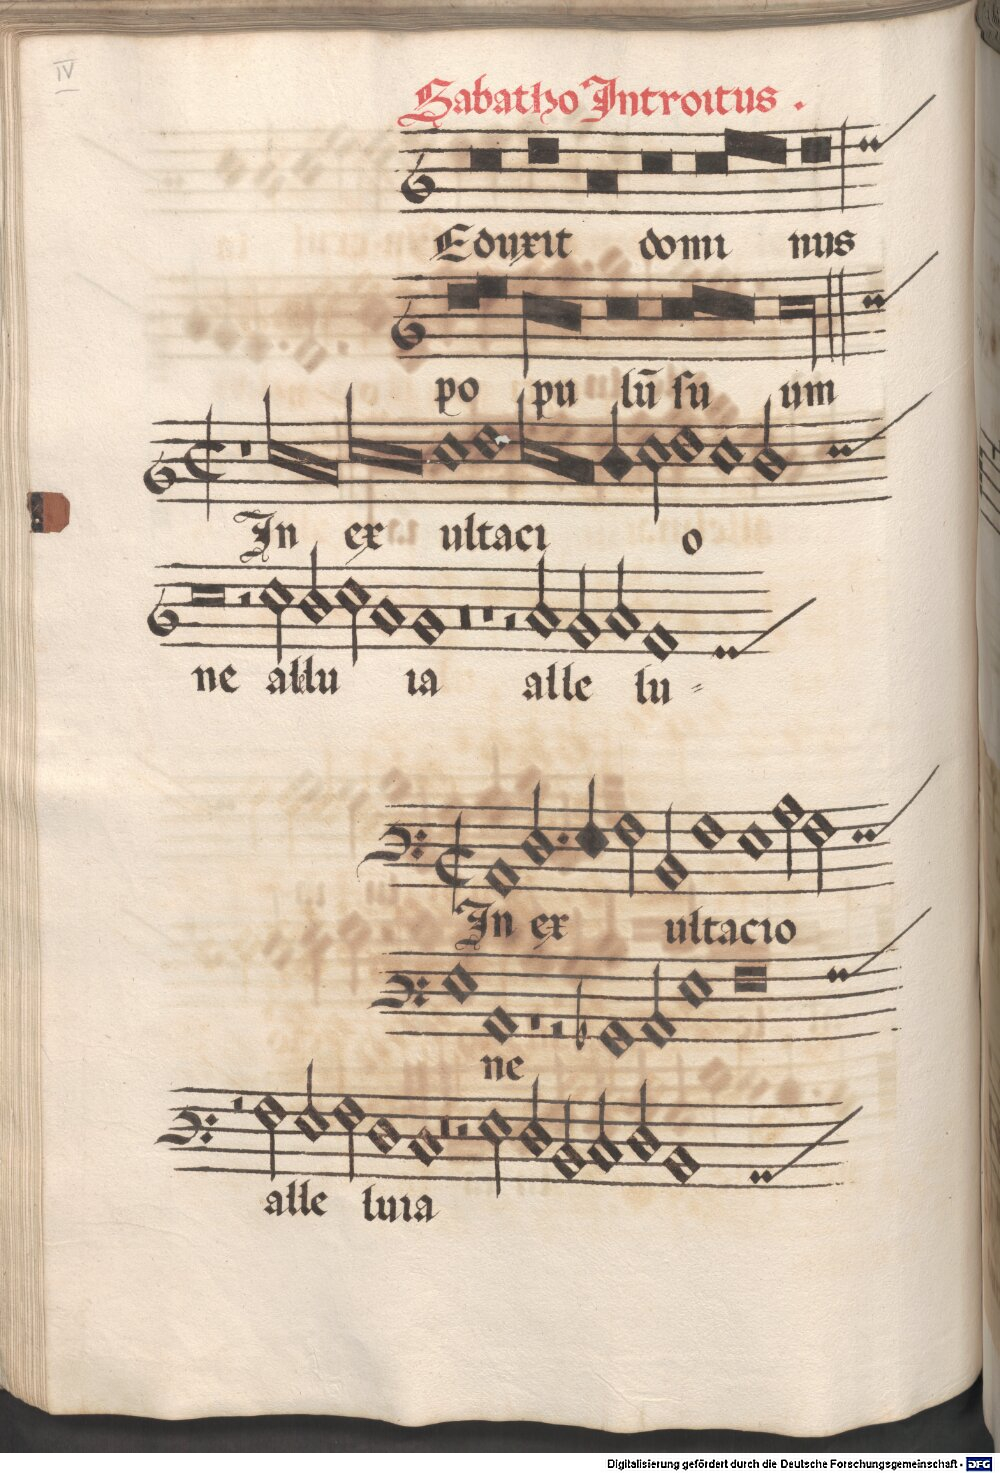 IV
Sabatho Introitus .
Eduxit domi nus
po pu lū su um
In ex ultaci o
ne allu ia alle lu =
In ex ultacio
ne
alle luia
Digitalisierung gefördert durch die Deutsche Forschungsgemeinschaft - DFG